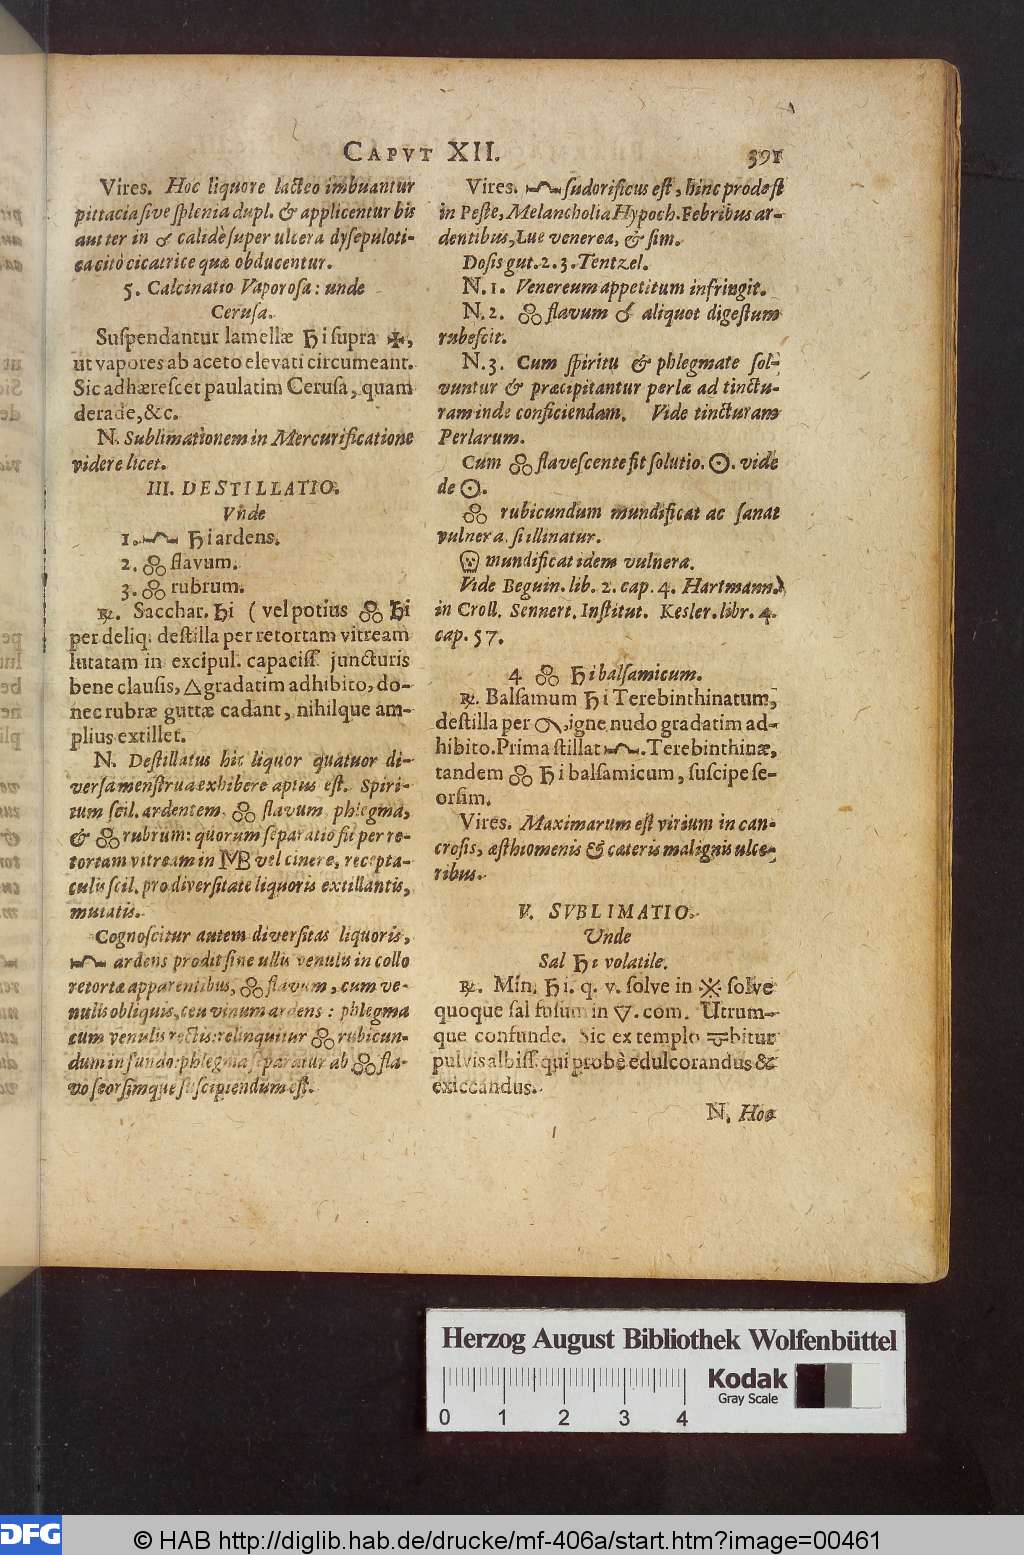 CAPVT XII.
391
Vires. Hoc liquore lacteo imbuantur
pittacia sive splenia dupl. & applicentur bis
aut ter in ♂ calidè super ulcera dysepuloti-
ca citò cicatrice quæ obducentur.
5. Calcinatio Vaporosa: unde
Cerusa.
Suspendantur lamellæ ♄i supra ✠,
ut vapores ab aceto elevati circumeant.
Sic adhærescet paulatim Cerusa, quam
derade, &c.
N. Sublimationem in Mercurificatione
videre licet.
III. DESTILLATIO.
Vnde
1. ♄i ardens.
2. flavum.
3. rubrum.
℞. Sacchar. ♄i (vel potius ♄i
per deliq. destilla per retortam vitream
lutatam in excipul. capaciss. juncturis
bene clausis, △ gradatim adhibito, do-
nec rubræ guttæ cadant, nihilque am-
plius extillet.
N. Destillatus hic liquor quatuor di-
versa menstrua exhibere aptus est. Spiri-
tum scil. ardentem, flavum phlegma,
& rubrum: quorum separatio fit per re-
tortam vitream in MB vel cinere, recepta-
culis scil. pro diversitate liquoris extillantis,
mutatis.
Cognoscitur autem diversitas liquoris,
ardens prodit sine ullis venulis in collo
retortæ apparentibus, flavum, cum ve-
nulis obliquis, ceu vinum ardens: phlegma
cum venulis rectis: relinquitur rubicun-
dum in fundo: phlegma separatur ab fla-
vo seorsimque suscipiendum est.
Vires. sudorificus est, hinc prodest
in Peste, Melancholia Hypoch. Febribus ar-
dentibus, Lue venerea, & sim.
Dosis gut. 2. 3. Tentzel.
N. 1. Venereum appetitum infringit.
N. 2. flavum ♂ aliquot digestum
rubescit.
N. 3. Cum spiritu & phlegmate sol-
vuntur & præcipitantur perlæ ad tinctu-
ram inde conficiendam. Vide tincturam
Perlarum.
Cum flavescente fit solutio. ☉. vide
de ☉.
rubicundum mundificat ac sanat
vulnera, si illinatur.
mundificat idem vulnera.
Vide Beguin. lib. 2. cap. 4. Hartmann.
in Croll. Sennert. Institut. Kesler. libr. 4.
cap. 57.
4 ♄i balsamicum.
℞. Balsamum ♄i Terebinthinatum,
destilla per , igne nudo gradatim ad-
hibito. Prima stillat . Terebinthinæ,
tandem ♄i balsamicum, suscipe se-
orsim.
Vires. Maximarum est virium in can-
crosis, æsthiomenis & cæteris malignis ulce-
ribus.
V. SVBLIMATIO.
Unde
Sal ♄i volatile.
℞. Min. ♄i. q. v. solve in solve
quoque sal fusum in ▽. com. Utrum-
que confunde. Sic ex templo bitur
pulvis albiss. qui probè edulcorandus &
exiccandus.
N. Hoc
Herzog August Bibliothek Wolfenbüttel
0 1 2 3 4
Kodak
Gray Scale
DFG
© HAB http://diglib.hab.de/drucke/mf-406a/start.htm?image=00461